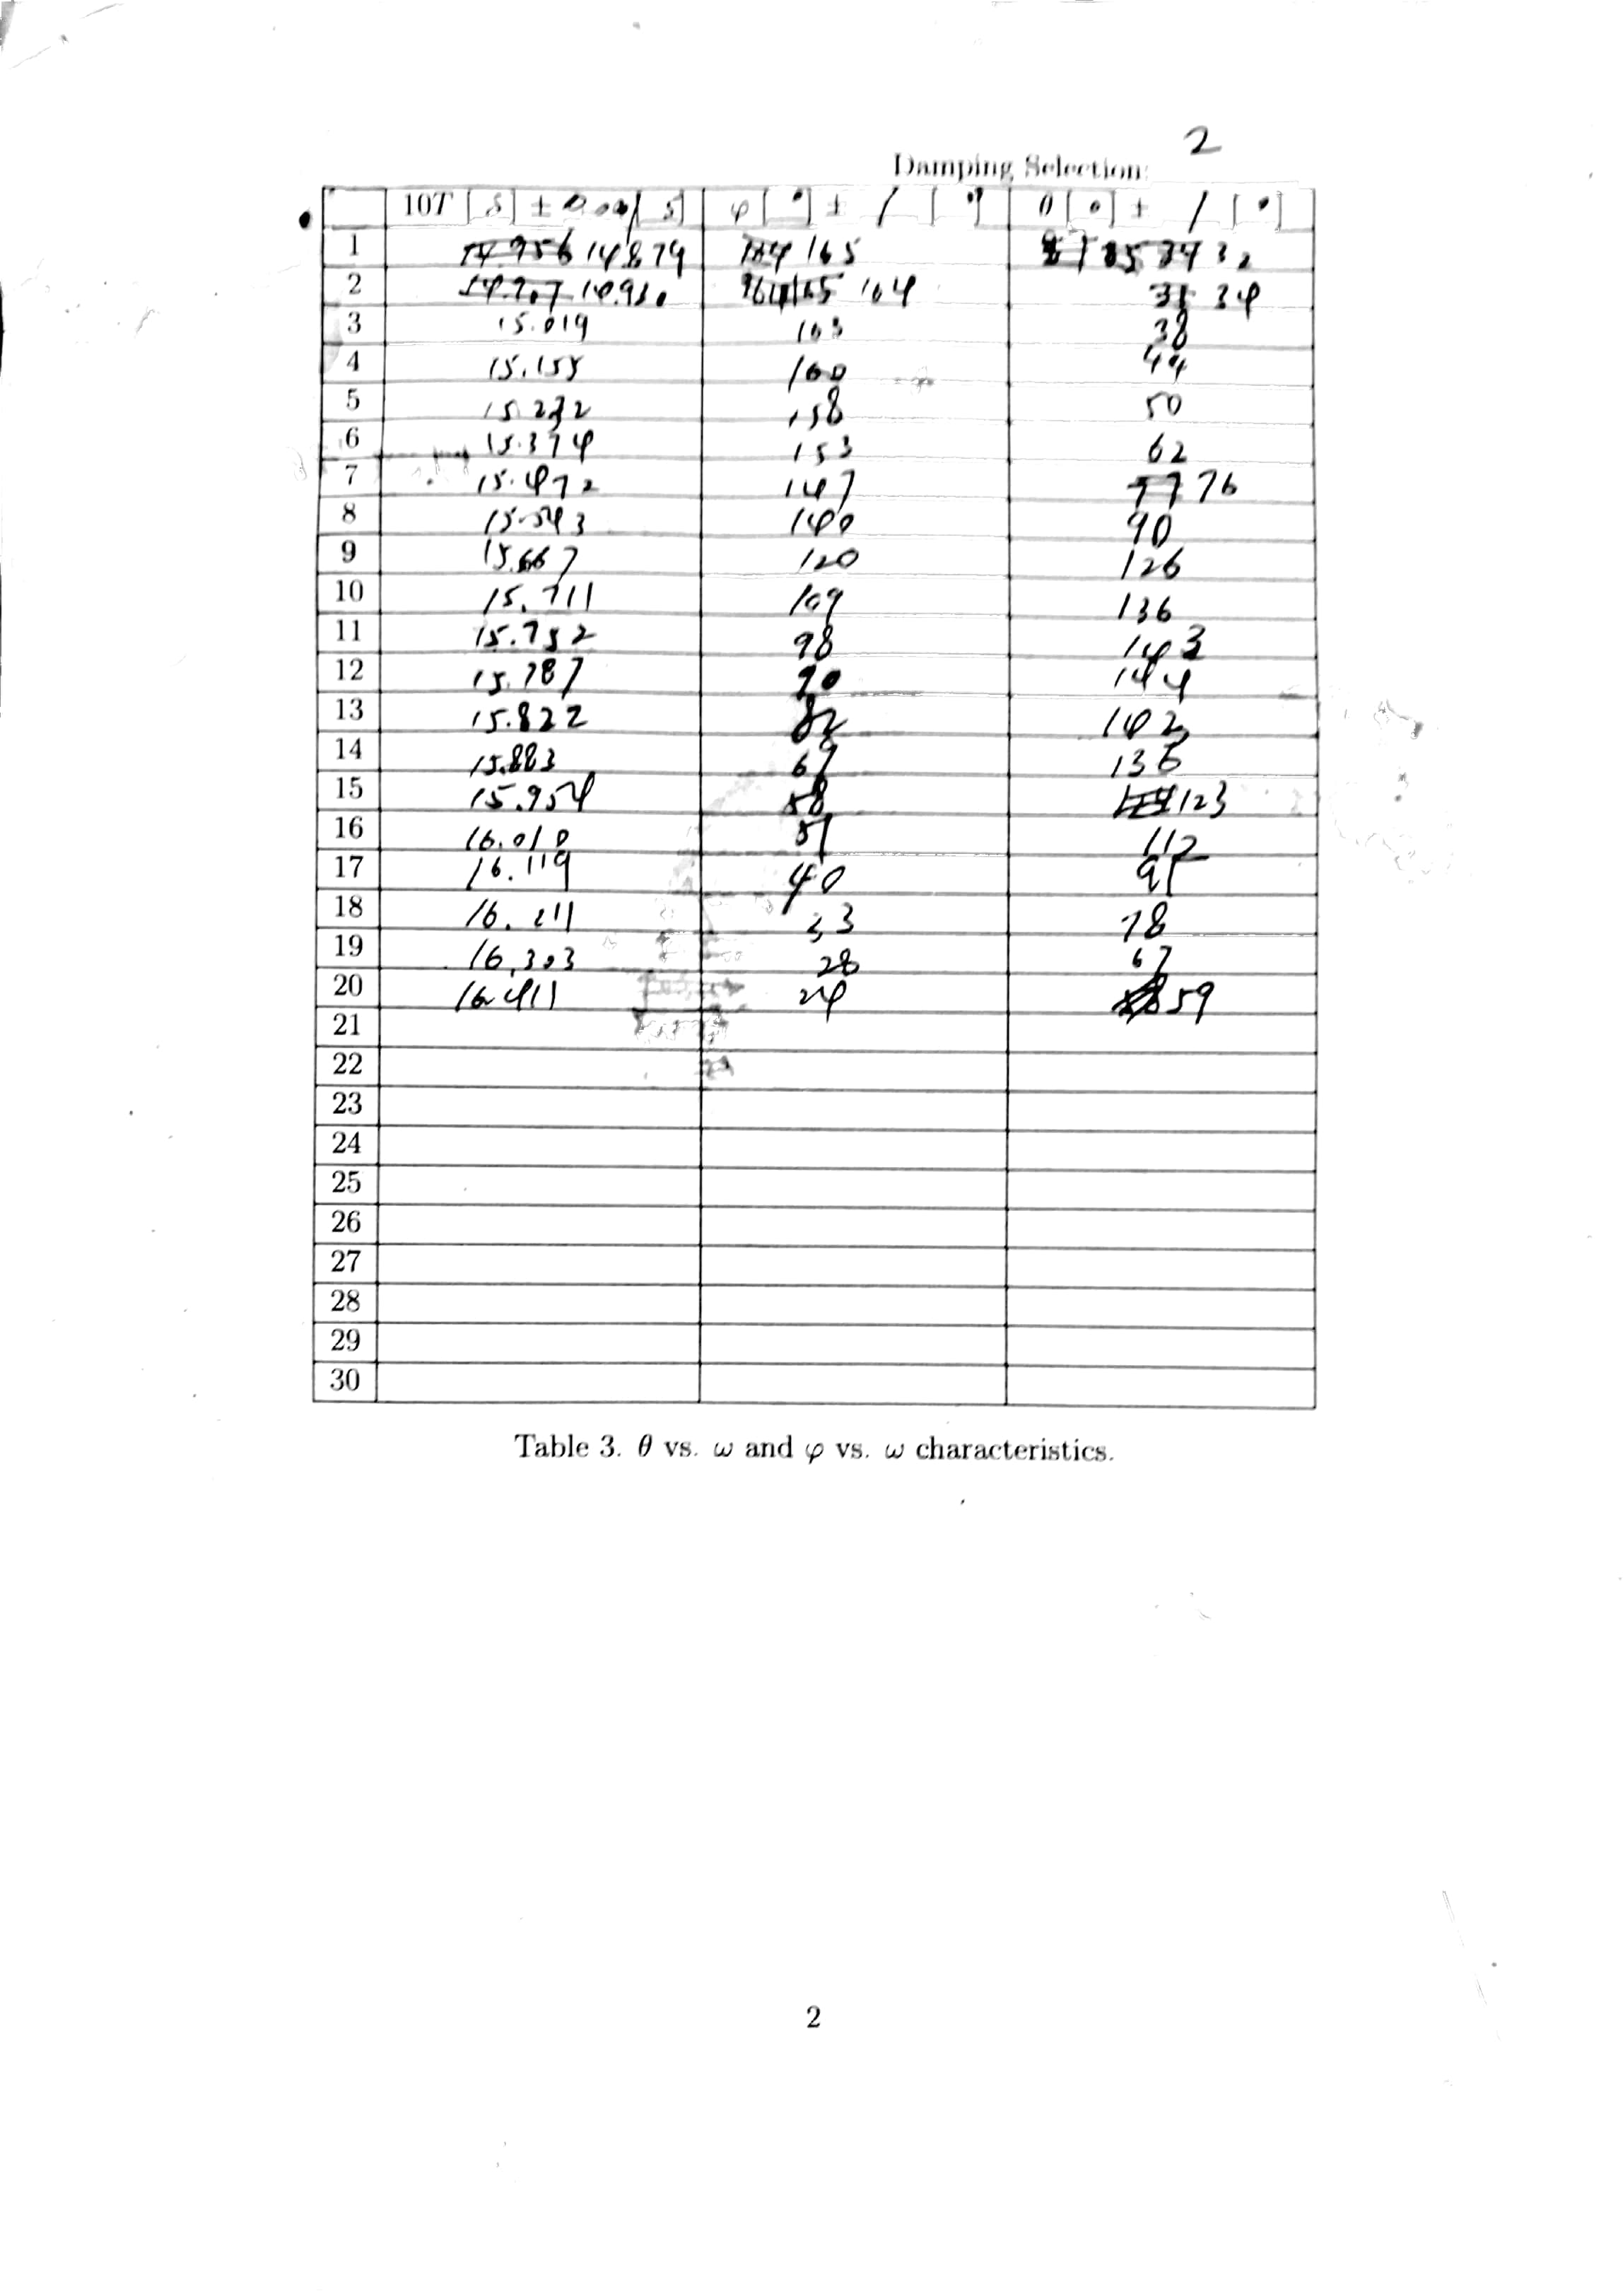 2
Damping Selection:
10T [s] ± 0.001 [s] φ [°] ± 1 [°] θ [°] ± 1 [°]
1 14.879 165 32
2 14.930 164 34
3 15.019 163 38
4 15.155 160 44
5 15.232 158 50
6 15.374 153 62
7 15.472 147 77 76
8 15.543 140 90
9 15.667 120 126
10 15.711 109 136
11 15.752 98 143
12 15.787 90 144
13 15.822 82 142
14 15.883 67 136
15 15.954 58 123
16 16.010 51 112
17 16.119 40 95
18 16.211 33 78
19 16.303 28 67
20 16.411 24 59
21
22
23
24
25
26
27
28
29
30
Table 3. θ vs. ω and φ vs. ω characteristics.
2